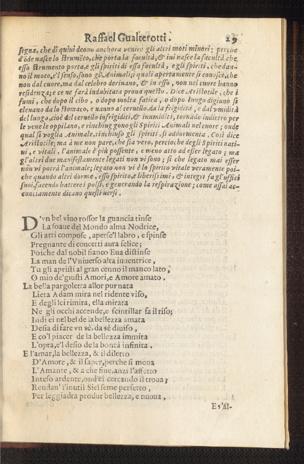 Raffael Gualterotti. 29
segna, che di quì deono anchora venire gli altri moti minori; perche
d'ōde nasce lo strumēto, che porta la facultà, & iui nasce la facultà, che
esso strumento porta, e gli spiriti di essa facultà, e gli spiriti, che dan-
no il moto, e'l senso, sono gli Animali; i quali apertamente si conosce, che
non dal cuore, ma dal celebro deriuano, & in esso, non nel cuore hanno
residenza; e ce ne farà indubitata proua questo. Dice Aristotile, che i
fumi, che dopo il cibo, o dopo molta fatica, o dopo lungo digiuno si
eleuano da lo stomaco, e vanno al ceruello, da la frigidità, e dal'vmidità
del luogo, cioè del ceruello infrigiditi, & inumiditi, tornādo indietro per
le vene le oppilano, e rinchiuggono gli Spiriti Animali nel cuore; onde
qual si voglia Animale, rinchiuso gli spiriti si adormenta. Così dice
Aristotile; ma à me non pare, che sia vero, percioche degli Spiriti nati-
ui, e vitali, l'Animale è più possente, e meno atto ad esser legato; ma
gl'altri due manifestamente legati non vi sono; se che legato mai esser
non vi potrà l'animale; legato non vi è lo spirito vitale veramente poi-
che quando altri dorme, esso spirito, e liberissimi, & integro fa gl'vffici
suoi, facendo battere i polsi, e generando la respirazione; come assai ac-
conciamente dicano questi versi.
D'vn bel viuo rossor la guancia tinse
La soaue del Mondo alma Nodrice,
Gli atti compose, aperse'l labro, e spinse
Pregnante di concetti aura felice;
Poiche dal nobil fianco Eua distinse
La man de l'Vniuerso alta inuentrice,
Tu gli apristi al gran cenno il manco lato,
O mio de'giusti Amori, e Amore amato.
La bella pargoletta allor pur nata
Lieta Adam mira nel ridente viso,
E degli lei rimira, ella mirata
Ne gli occhi accende, e scintrillar fa il riso;
Indi ei nel bel de la bellezza amata
Desia di far vn sè, da sè diuiso,
E co'l piacer de la bellezza immita
L'opra, e'l desio de la bontà infinita,
E l'amar, la bellezza, & il diletto
D'Amore, & il saper, perche si moua
L'Amante, & a che fine, anzi l'affetto
Inteso ardente, ond'ei cercando il troua;
Per leggiadra produr bellezza, e nuoua,
E s'al-